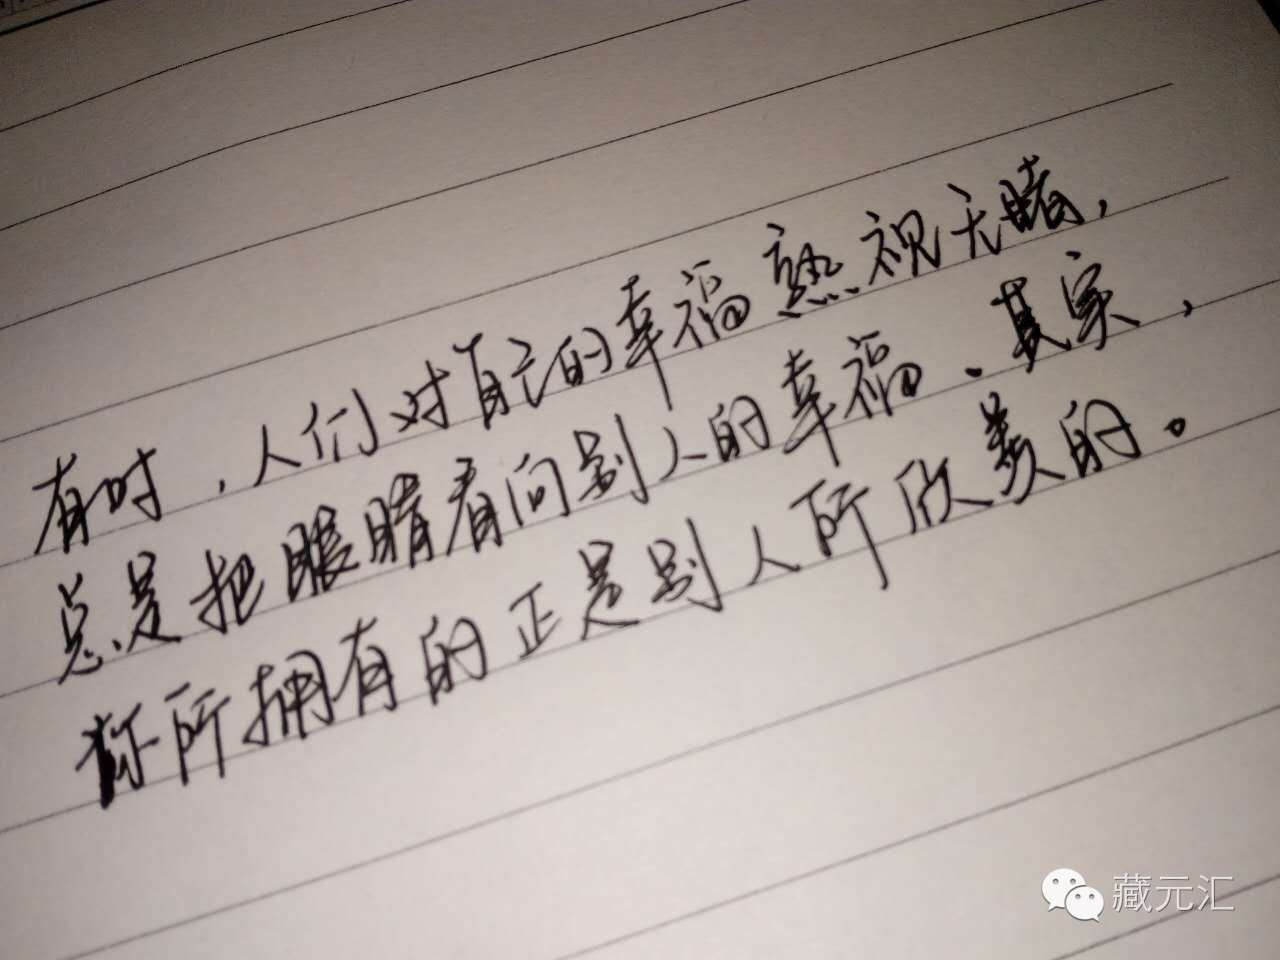 有时，人们对自己的幸福熟视无睹，
总是把眼睛看向别人的幸福．其实，
你所拥有的正是别人所欣羡的。
藏元汇